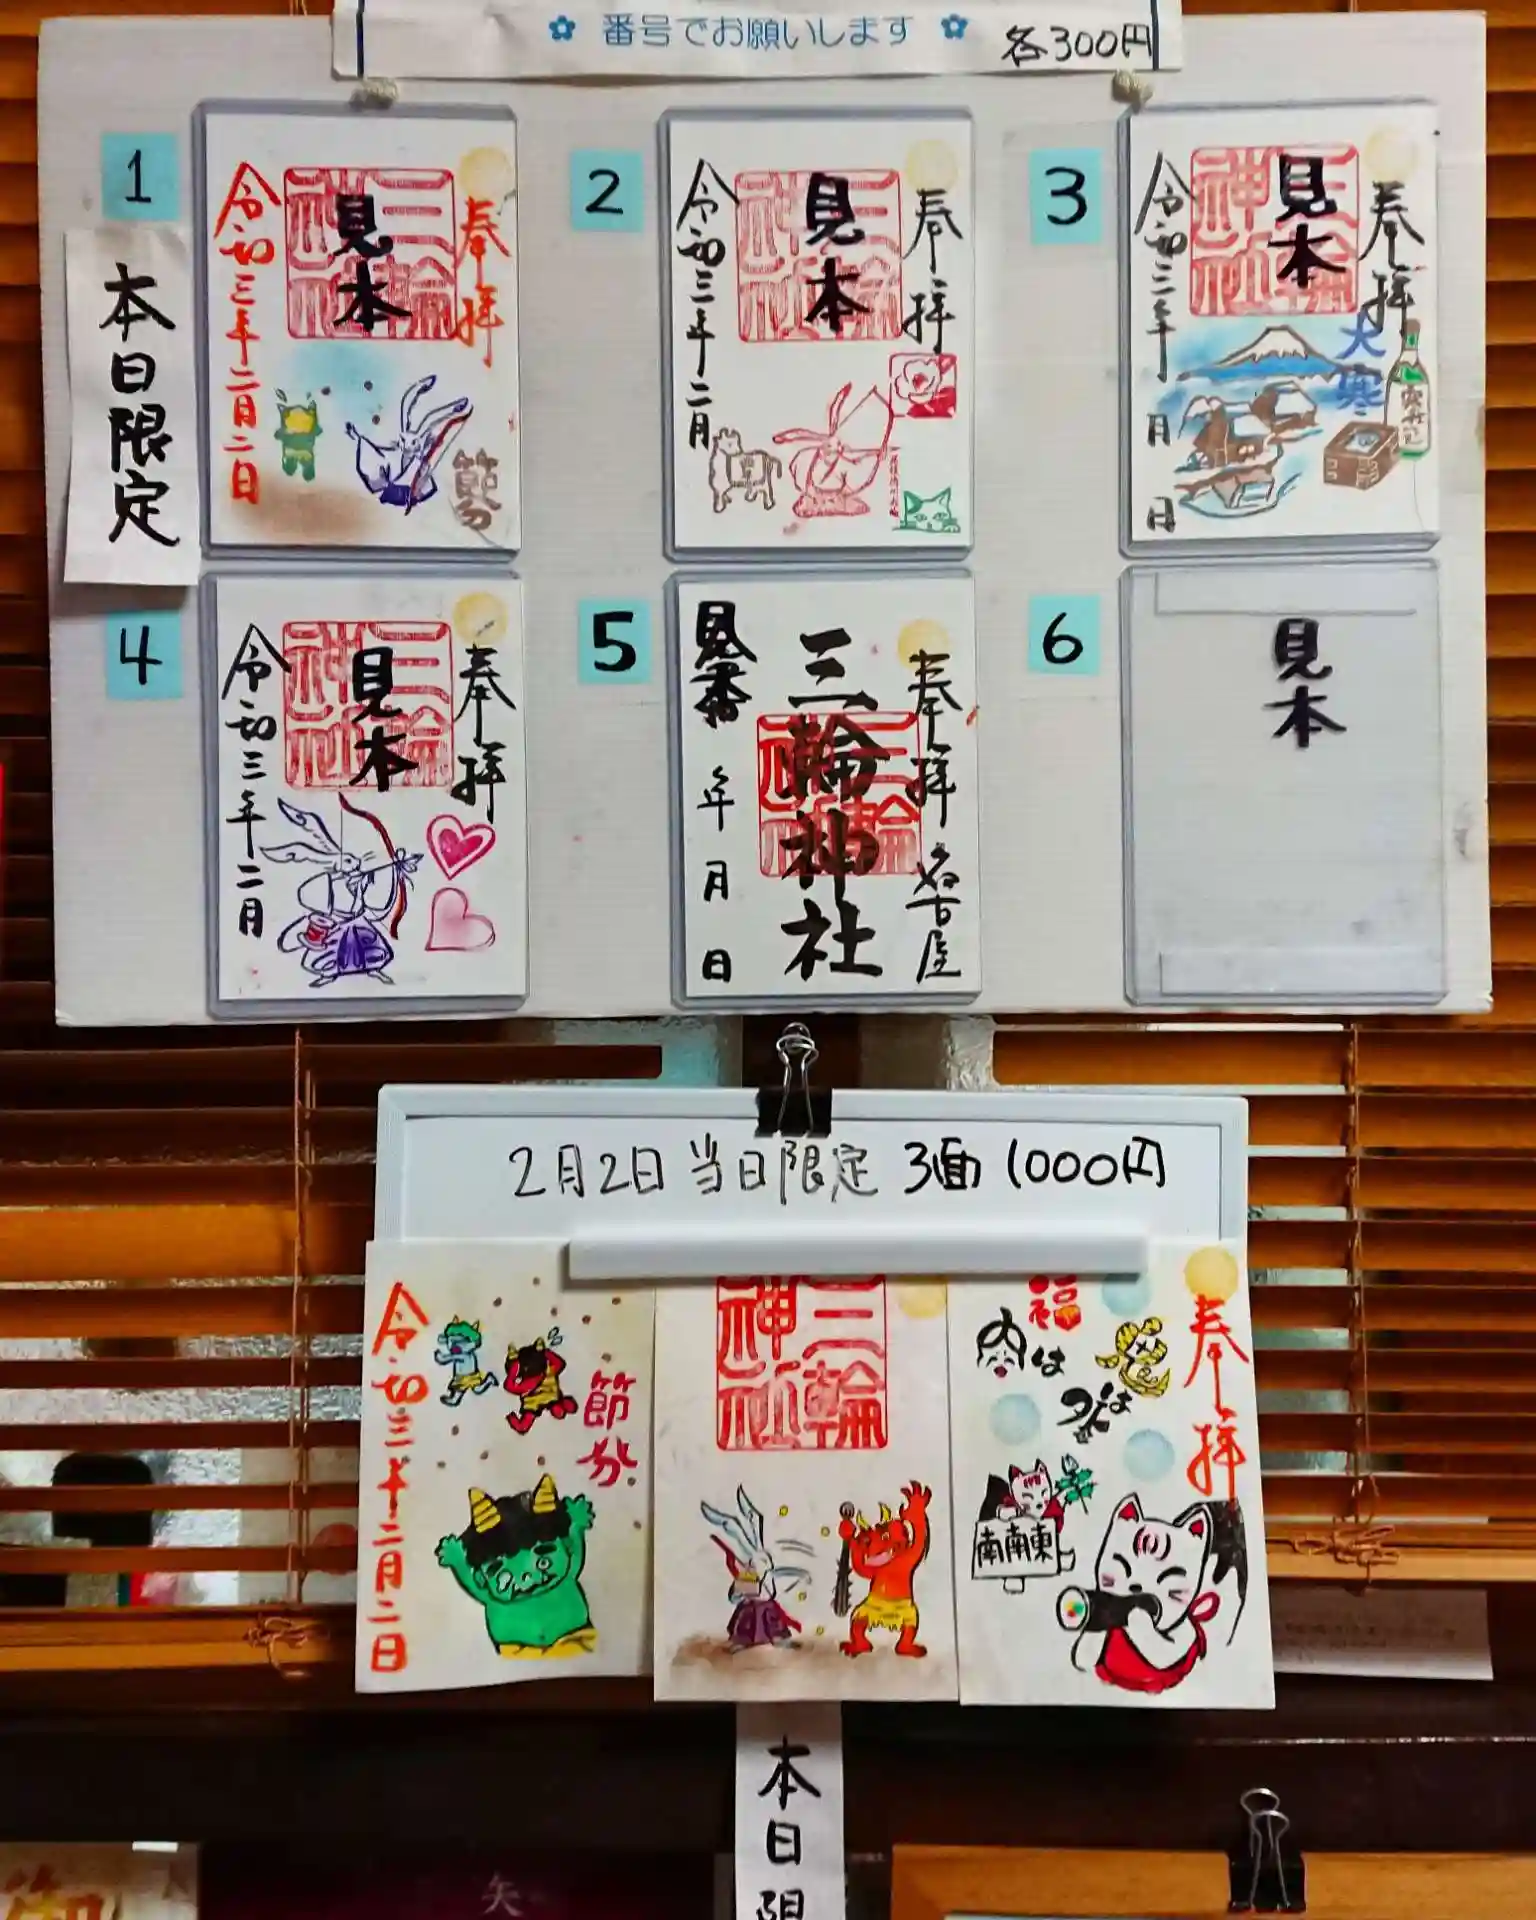 番号でお願いします
各300円
1
本日限定
奉拝
三輪神社
見本
令和三年二月二日
節分
2
奉拝
三輪神社
見本
令和三年二月
3
奉拝
三輪神社
見本
大寒
令和三年 月 日
4
奉拝
三輪神社
見本
令和三年二月
5
奉拝 名古屋
三輪神社
三輪神社
年 月 日
6
見本
2月2日 当日限定 3面 1000円
奉拝
福は内
鬼は外
南南東
三輪神社
節分
本日限
矢